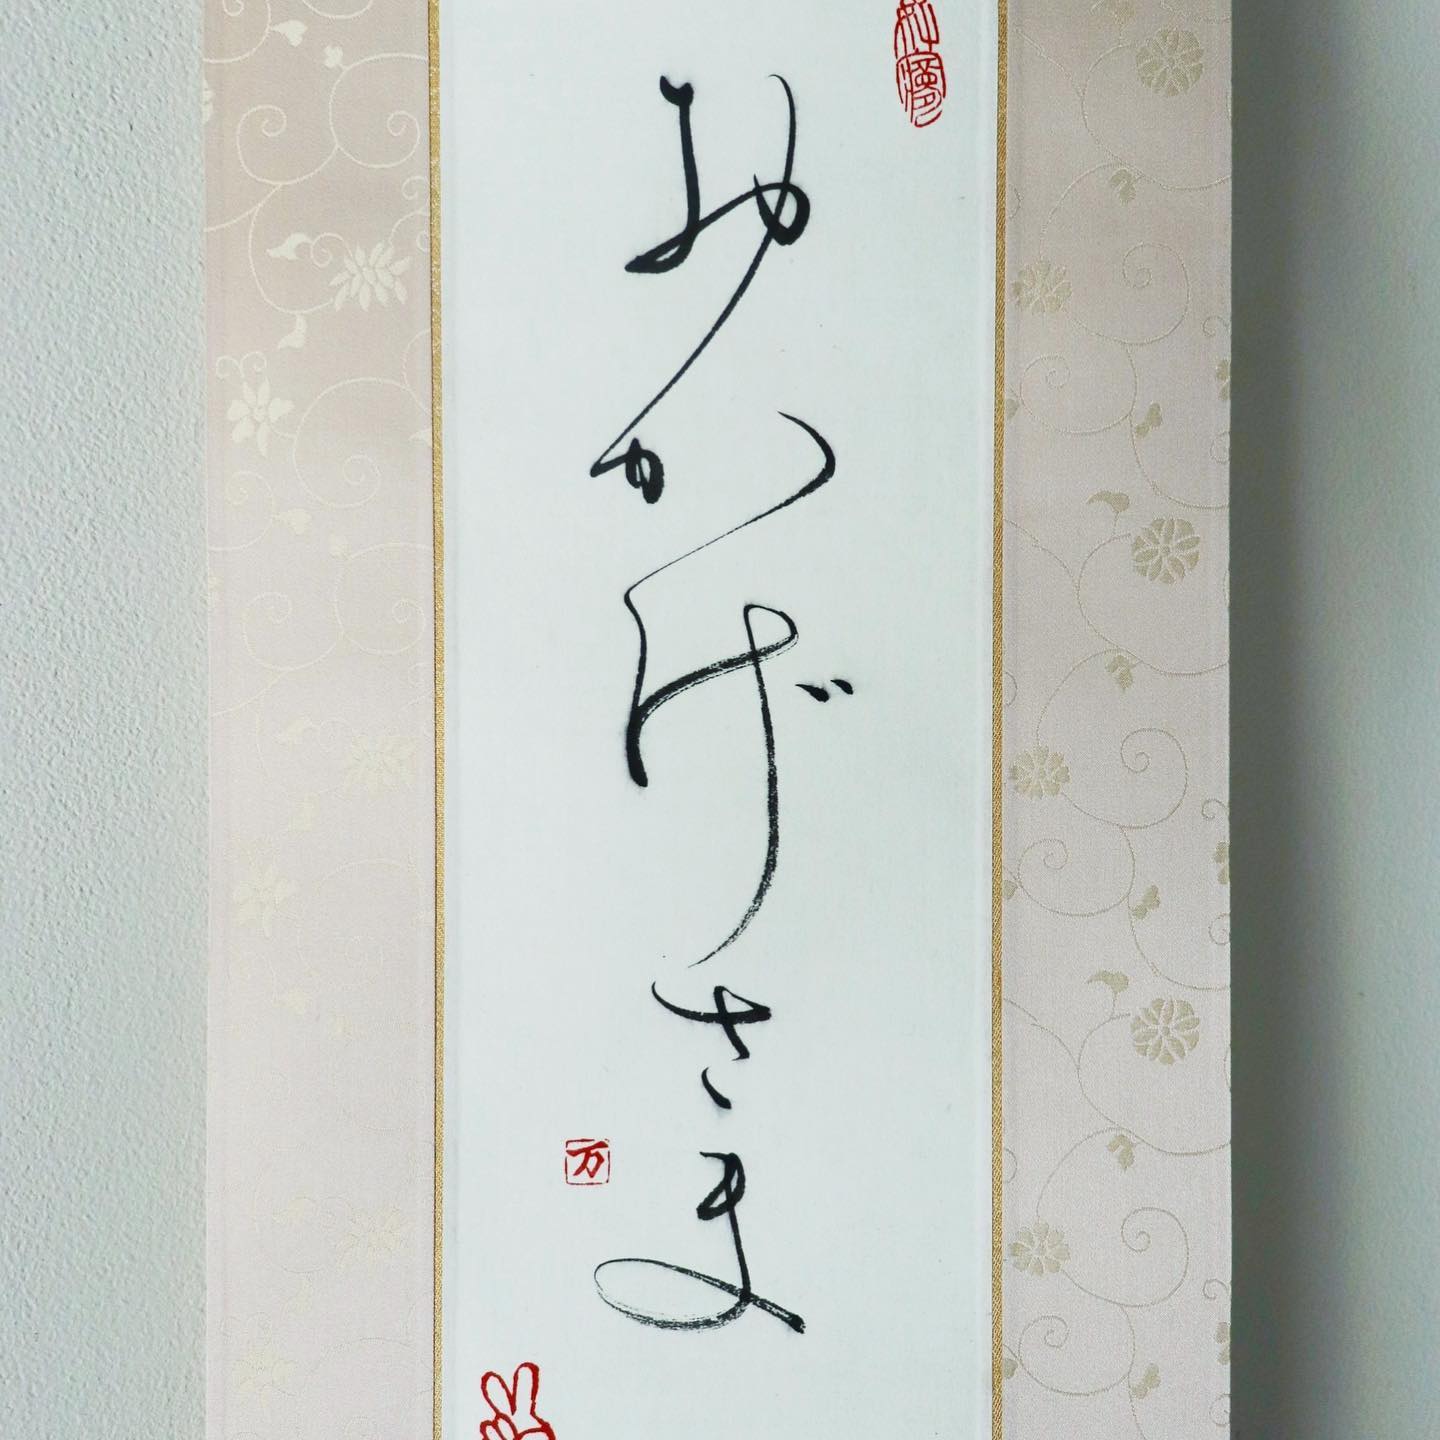 おかげさま
万